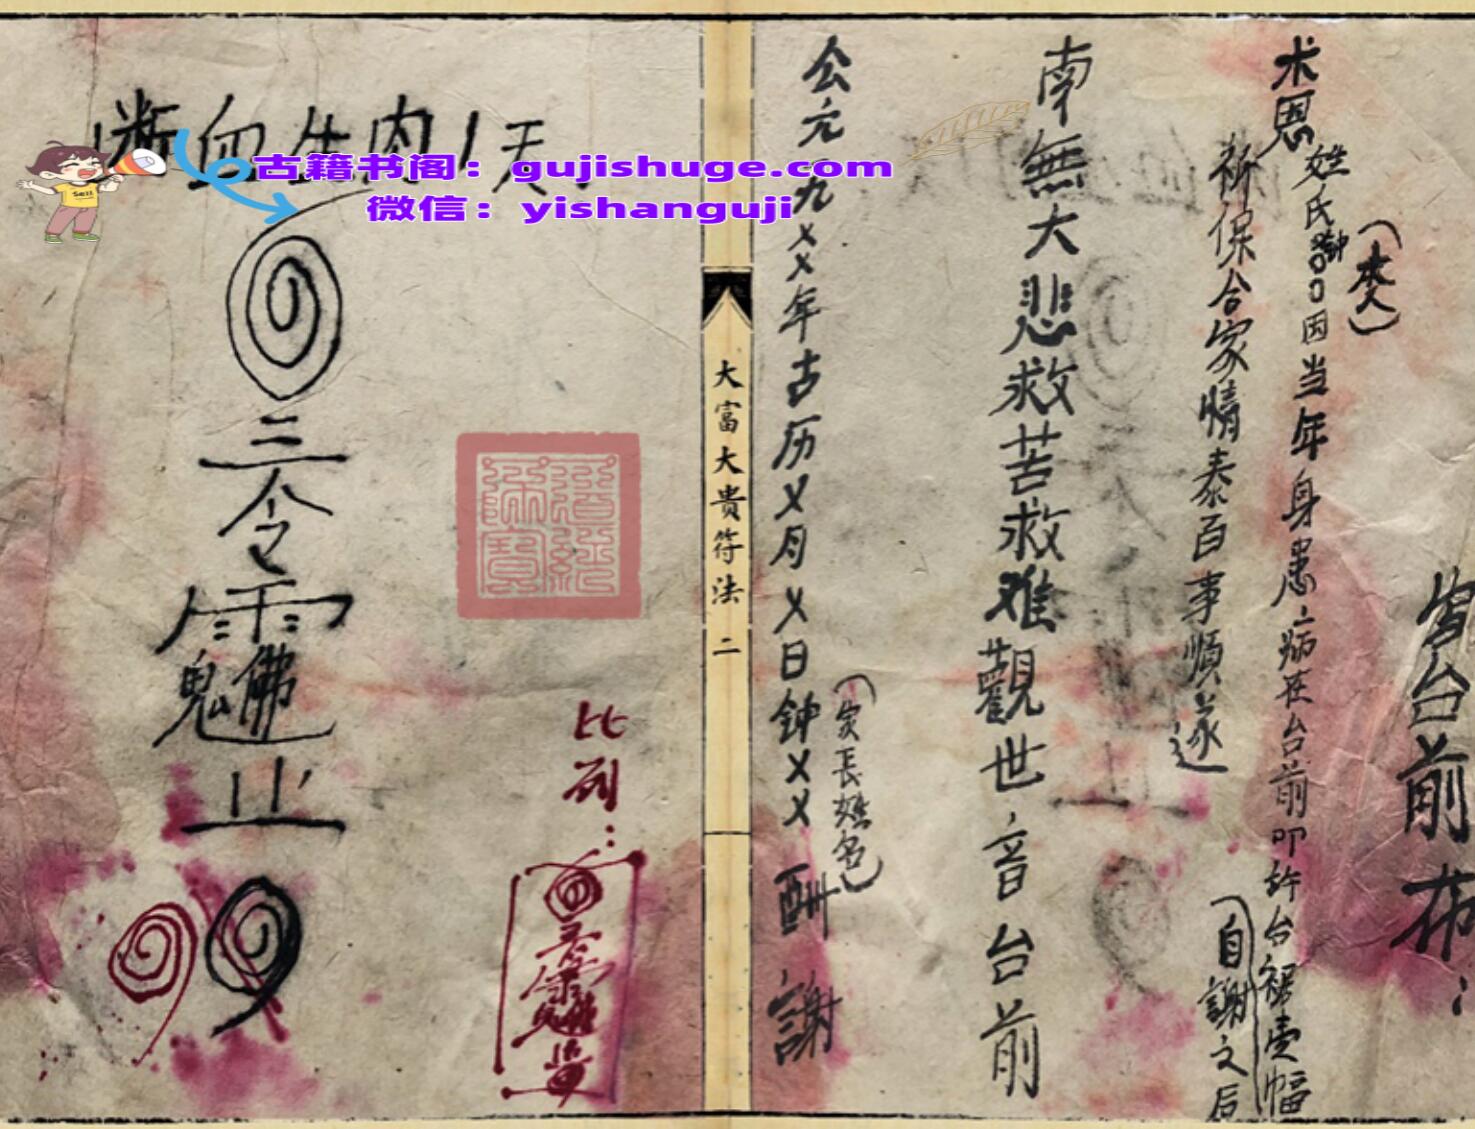 宫台前布：
术恩姓氏鈡〇〇因当年身患病在台前叩許台裙壹幅
（本人）
祈保合家情泰百事順遂
（自謝之后
南無大悲救苦救难觀世音台前
公元一九××年古历×月×日钟××酬謝
（家長姓名）
大富大贵符法 二
断血生肉1天：
古籍书阁：gujishuge.com
微信：yishanguji
Sell
三令
鬼佛
比列：